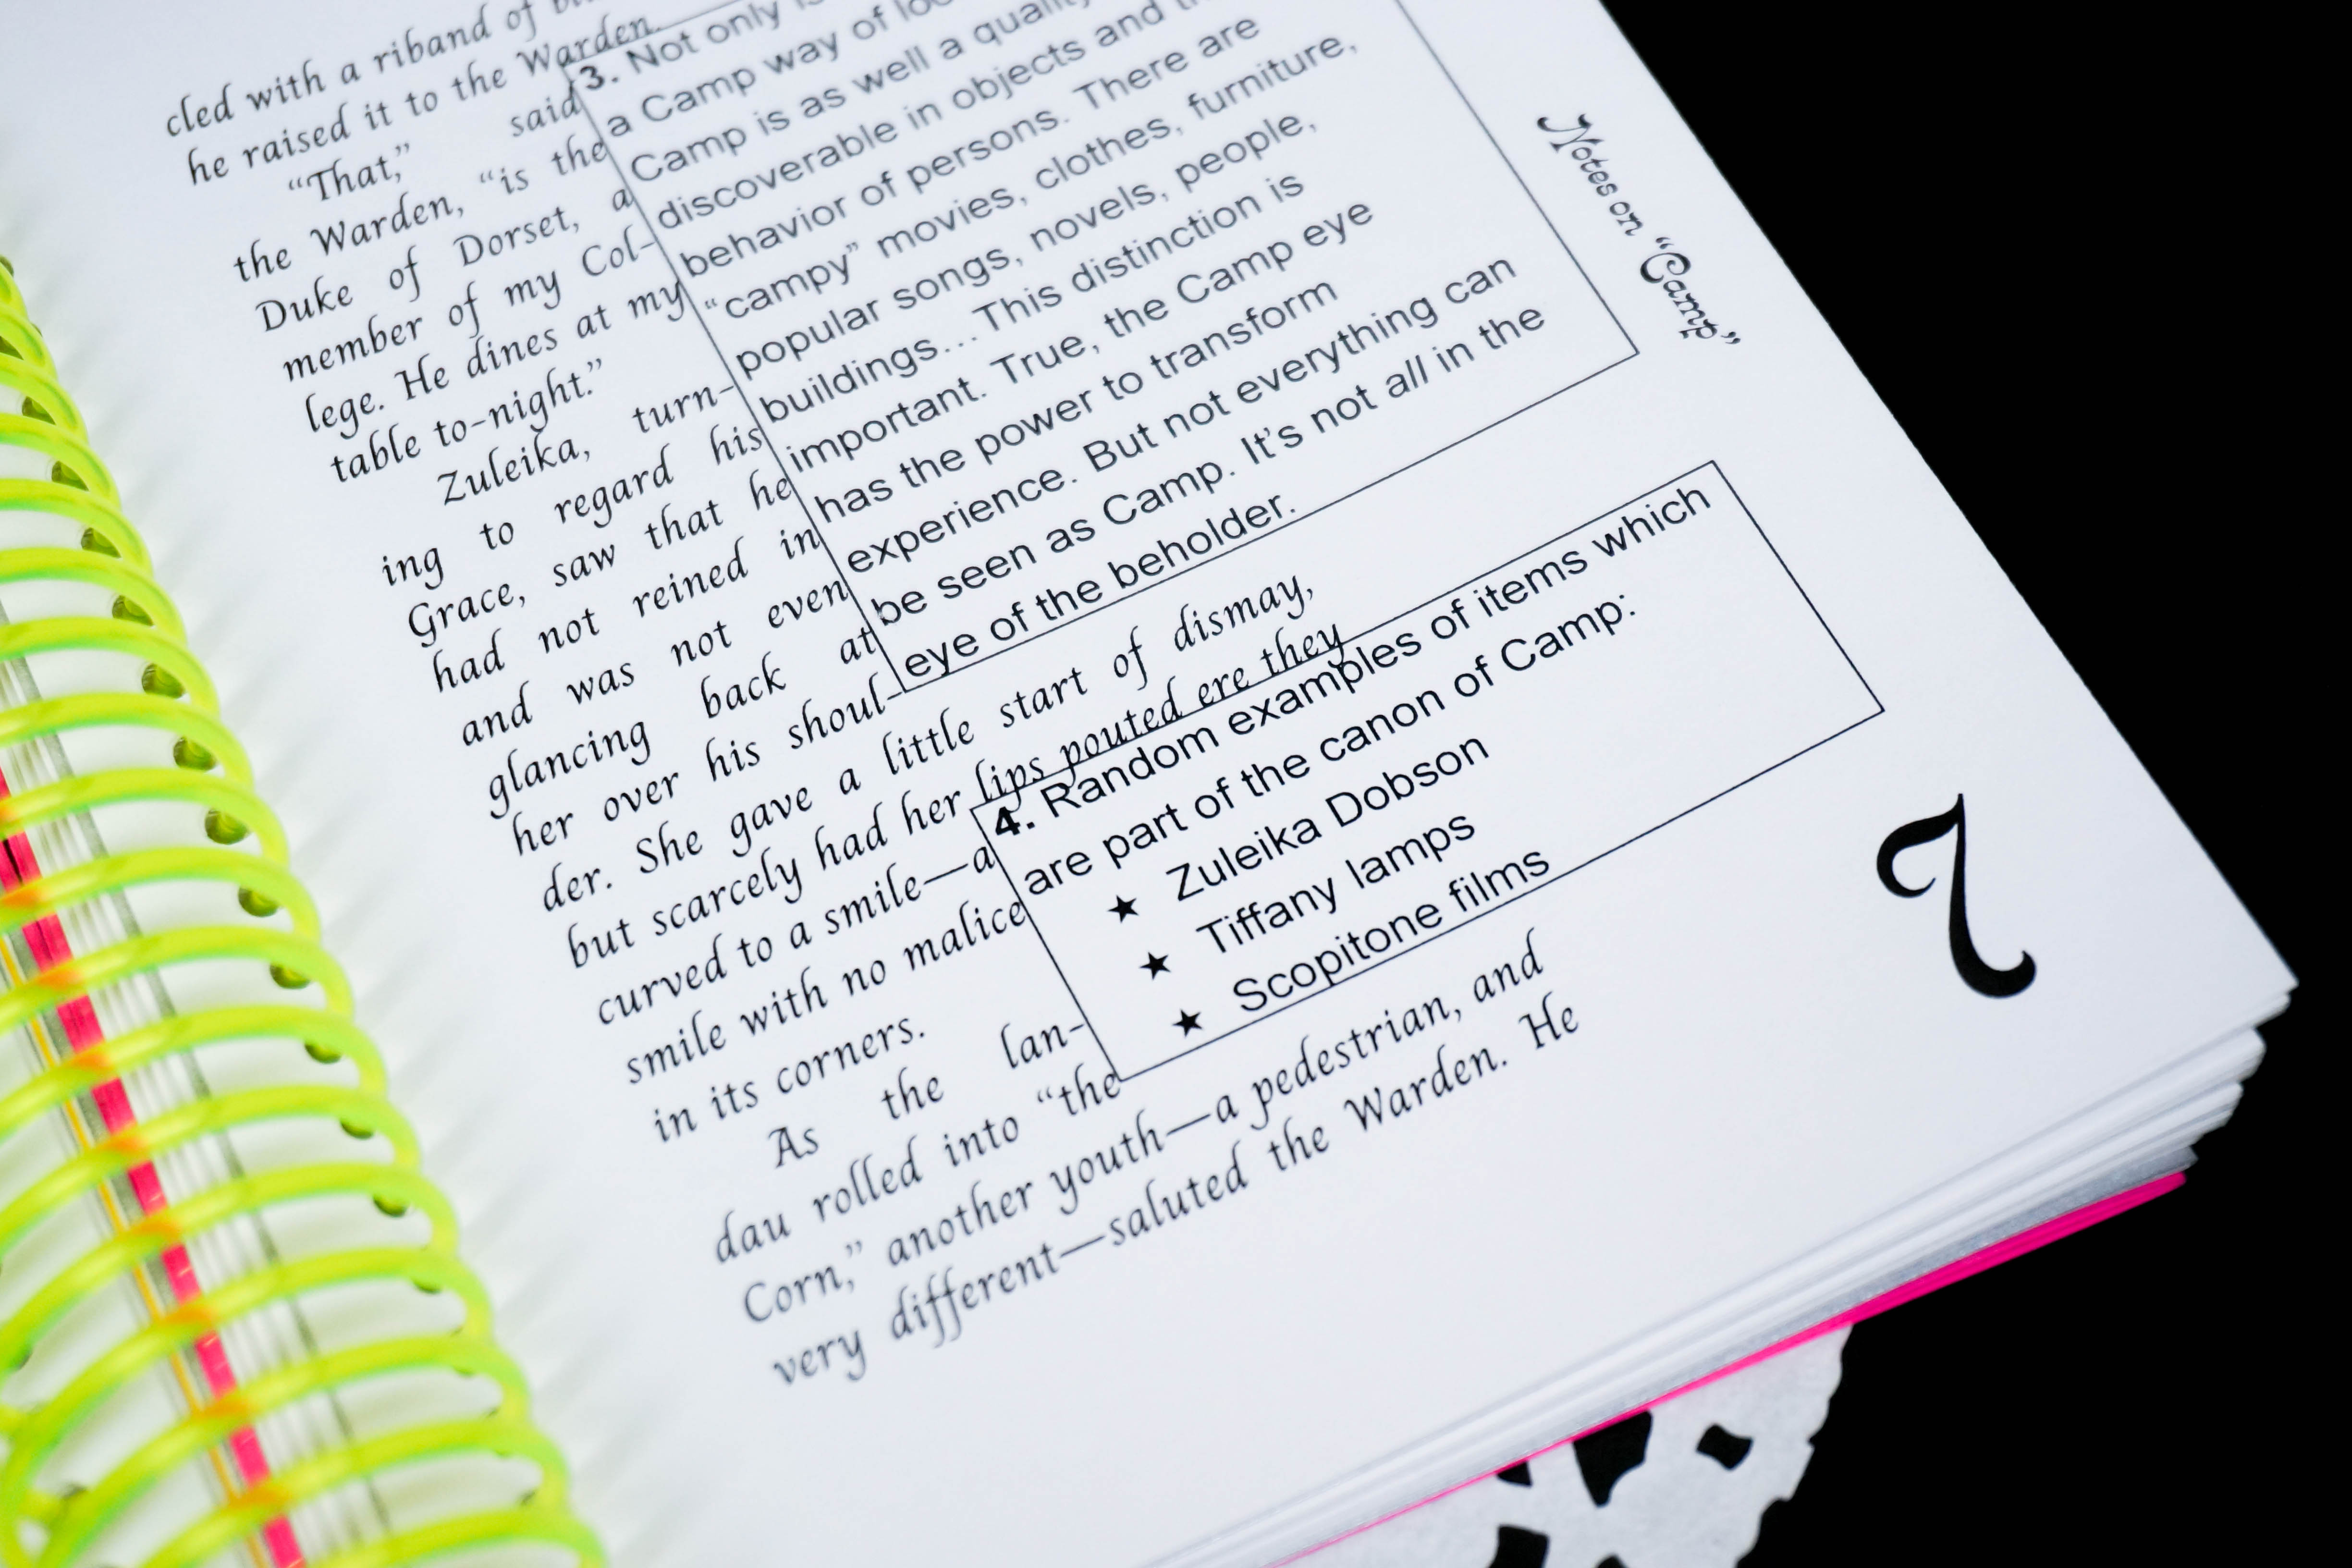 cled with a riband of
he raised it to the Warden.
“That,” said
the Warden, “is the
Duke of Dorset, a
member of my Col-
lege. He dines at my
table to-night.”
Zuleika, turn-
ing to regard his
Grace, saw that he
had not reined in
and was not even
glancing back at
her over his shoul-
der. She gave a little start of dismay,
but scarcely had her lips pouted ere they
curved to a smile—a
smile with no malice
in its corners.
As the lan-
dau rolled into “the
Corn,” another youth—a pedestrian, and
very different—saluted the Warden. He
3. Not only is
a Camp way of
Camp is as well a quality
discoverable in objects and
behavior of persons. There are
“campy” movies, clothes, furniture,
popular songs, novels, people,
buildings... This distinction is
important. True, the Camp eye
has the power to transform
experience. But not everything can
be seen as Camp. It’s not all in the
eye of the beholder.
4. Random examples of items which
are part of the canon of Camp:
★ Zuleika Dobson
★ Tiffany lamps
★ Scopitone films
Notes on “Camp”
7